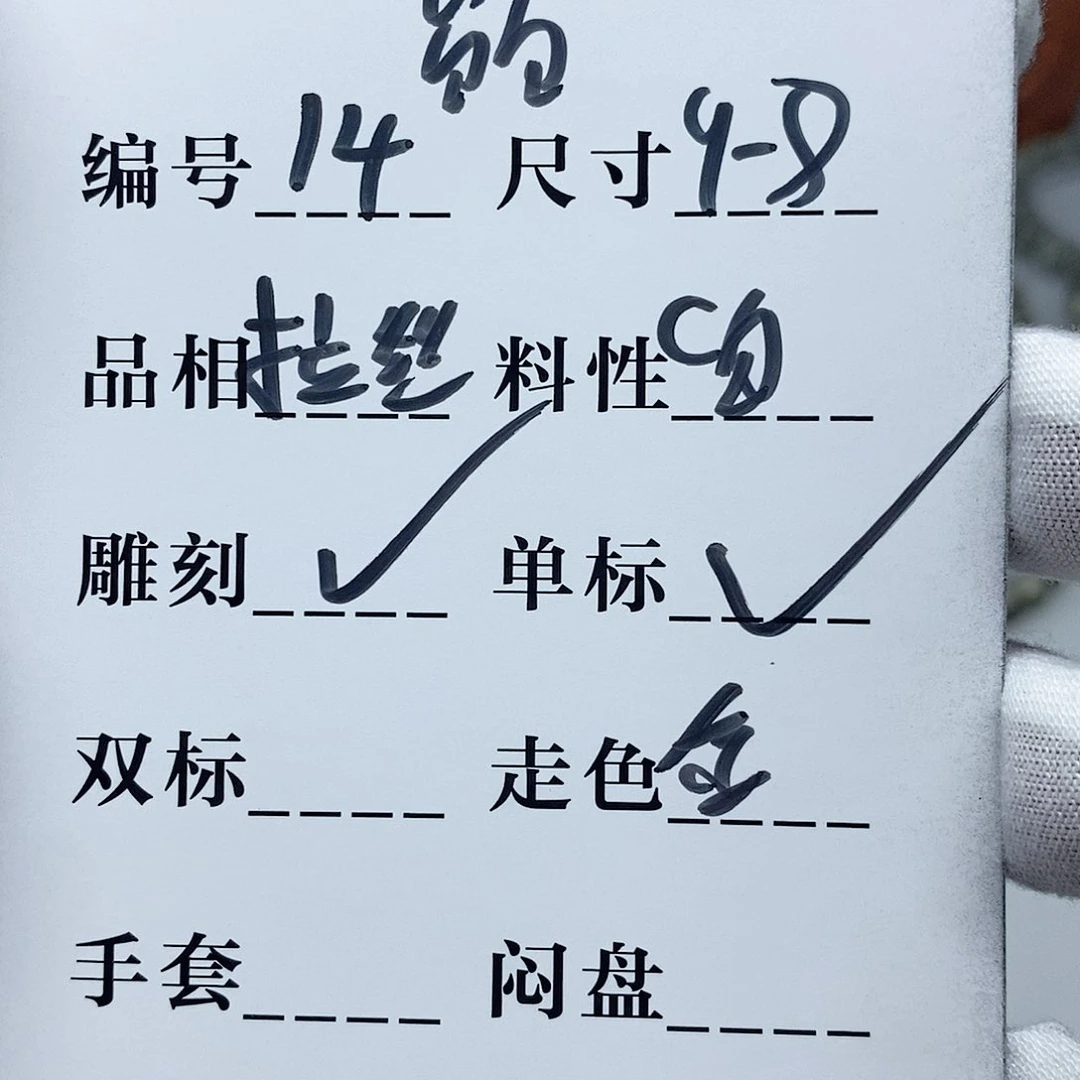 编号 14 尺寸 9-8
品相 拉丝 料性 C
雕刻 ✓ 单标 ✓
双标____ 走色 全
手套____ 闷盘____